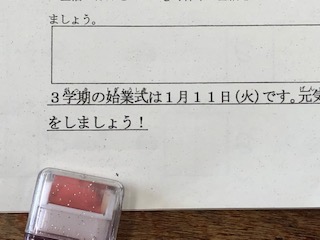 ましょう。
3学期の始業式は1月11日(火)です。元
をしましょう！